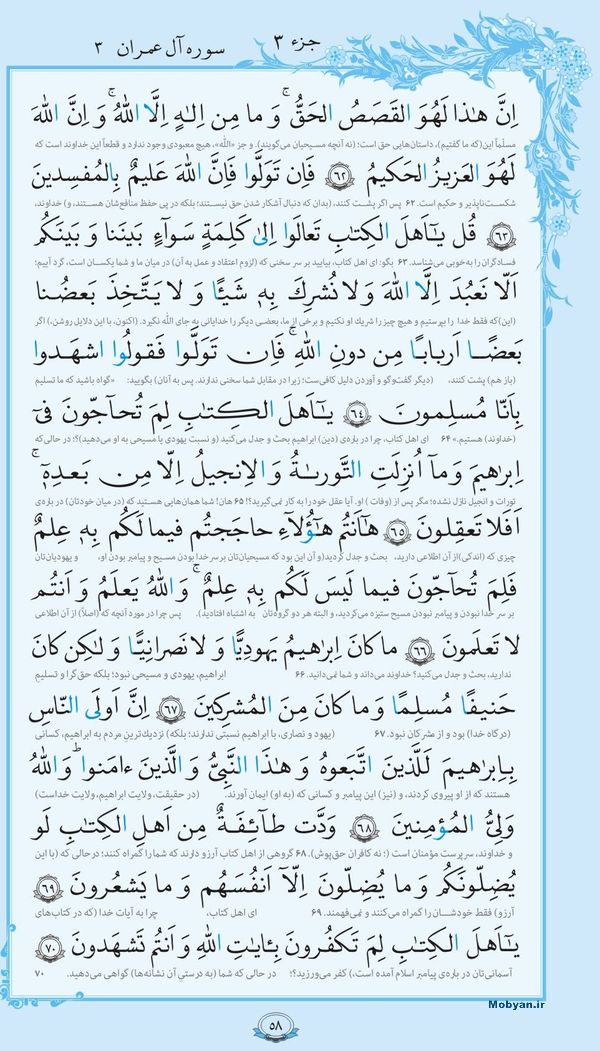 جزء ۳
سوره آل عمران ۳
اِنَّ هٰذا لَهُوَ القَصَصُ الحَقُّ ۚ وَ ما مِن اِلٰهٍ اِلَّا اللهُ ۚ وَ اِنَّ اللهَ
مسلّماً این(که ما گفتیم)، داستان‌هایی حق است؛ (نه آنچه مسیحیان می‌گویند). و جز «الله»، هیچ معبودی وجود ندارد و قطعاً این خداوند است که
لَهُوَ العَزیزُ الحَکیمُ ﴿۶۲﴾ فَاِن تَوَلَّوا فَاِنَّ اللهَ عَلیمٌ بِالمُفسِدینَ
شکست‌ناپذیر و حکیم است. ۶۲ پس اگر پشت کنند، (بدان که دنبال آشکار شدن حق نیستند؛ بلکه در پی حفظ منافع‌شان هستند، و) خداوند،
﴿۶۳﴾ قُل یٰٓاَهلَ الکِتٰبِ تَعالَوا اِلیٰ کَلِمَةٍ سَوآءٍ بَینَنا وَ بَینَکُم
فسادگران را به‌خوبی می‌شناسد. ۶۳ بگو: ای اهل کتاب، بیایید بر سر سخنی که (لزوم اعتقاد و عمل به آن) در میان ما و شما یکسان است، گرد آییم؛
اَلّا نَعبُدَ اِلَّا اللهَ وَ لا نُشرِكَ بِهٖ شَیـًٔا وَ لا یَتَّخِذَ بَعضُنا
(این)که فقط خدا را بپرستیم و هیچ چیز را شریك او نکنیم و برخی از ما، بعضی دیگر را خدایانی به جای الله نگیرد. (اکنون، با این دلایل روشن،) اگر
بَعضًا اَربابًا مِن دونِ اللهِ ۚ فَاِن تَوَلَّوا فَقولُوا اشهَدوا
(باز هم) پشت کنند، (دیگر گفت‌وگو و آوردن دلیل کافی‌ست؛ زیرا در مقابل شما سخنی ندارند. پس به آنان) بگویید: «گواه باشید که ما تسلیم
بِاَنّا مُسلِمونَ ﴿۶۴﴾ یٰٓاَهلَ الکِتٰبِ لِمَ تُحآجّونَ فیٓ
(خداوند) هستیم.» ۶۴ ای اهل کتاب، چرا در باره‌ی (دین) ابراهیم بحث و جدل می‌کنید (و نسبت یهودی یا مسیحی به او می‌دهید)؟؛ در حالی‌که
اِبرٰهیمَ وَ مآ اُنزِلَتِ التَّورىٰةُ وَ الاِنجیلُ اِلّا مِن بَعدِهٖٓ ۚ
تورات و انجیل نازل نشده؛ مگر پس از (وفات) او. آیا عقل خود را به کار نمی‌گیرید؟! ۶۵ هان! شما همان‌هایی هستید که (در میان خودتان) در باره‌ی
اَفَلا تَعقِلونَ ﴿۶۵﴾ هٰٓاَنتُم هٰٓؤُلآءِ حاجَجتُم فیما لَکُم بِهٖ عِلمٌ
چیزی که (اندکی) از آن اطلاعی دارید، بحث و جدل کردید(و آن این بود که مسیحیان‌تان بر سر خدا بودن مسیح و پیامبر بودن او، و یهودیان‌تان
فَلِمَ تُحآجّونَ فیما لَیسَ لَکُم بِهٖ عِلمٌ ۚ وَ اللهُ یَعلَمُ وَ اَنتُم
بر سر خدا نبودن و پیامبر نبودن مسیح ستیزه می‌کردید، و البته هر دو گروه‌تان به اشتباه افتادید). پس چرا در مورد آنچه که (اصلاً) از آن اطلاعی
لا تَعلَمونَ ﴿۶۶﴾ ما کانَ اِبرٰهیمُ یَهودِیًّا وَ لا نَصرانِیًّا وَ لٰکِن کانَ
ندارید، بحث و جدل می‌کنید؟ خداوند می‌داند و شما نمی‌دانید. ۶۶ ابراهیم، یهودی و مسیحی نبود؛ بلکه حق‌گرا و تسلیم
حَنیفًا مُسلِمًا وَ ما کانَ مِنَ المُشرِکینَ ﴿۶۷﴾ اِنَّ اَولَی النّاسِ
(درگاه خدا) بود و از مشرکان نبود. ۶۷ (یهود و نصاری، با ابراهیم نسبتی ندارند؛ بلکه) نزدیك‌ترین مردم به ابراهیم، کسانی
بِاِبرٰهیمَ لَلَّذینَ اتَّبَعوهُ وَ هٰذَا النَّبِیُّ وَ الَّذینَ ءامَنوا ۗ وَ اللهُ
هستند که از او پیروی کردند، و (نیز) این پیامبر و کسانی که (به او) ایمان آورند. (در حقیقت، ولایت ابراهیم، ولایت خداست)
وَلِیُّ المُؤمِنینَ ﴿۶۸﴾ وَدَّت طآئِفَةٌ مِن اَهلِ الکِتٰبِ لَو
و خداوند، سرپرست مؤمنان است (؛ نه کافران حق‌پوش). ۶۸ گروهی از اهل کتاب آرزو دارند که شما را گمراه کنند؛ در حالی که (با این
یُضِلّونَکُم وَ ما یُضِلّونَ اِلّآ اَنفُسَهُم وَ ما یَشعُرونَ ﴿۶۹﴾
آرزو) فقط خودشان را گمراه می‌کنند و نمی‌فهمند. ۶۹ ای اهل کتاب، چرا به آیات خدا (که در کتاب‌های
یٰٓاَهلَ الکِتٰبِ لِمَ تَکفُرونَ بِـٔایٰتِ اللهِ وَ اَنتُم تَشهَدونَ ﴿۷۰﴾
آسمانی‌تان در باره‌ی پیامبر اسلام آمده است،) کفر می‌ورزید؟؛ در حالی که شما (به درستیِ آن نشانه‌ها) گواهی می‌دهید. ۷۰
۵۸
Mobyan.ir